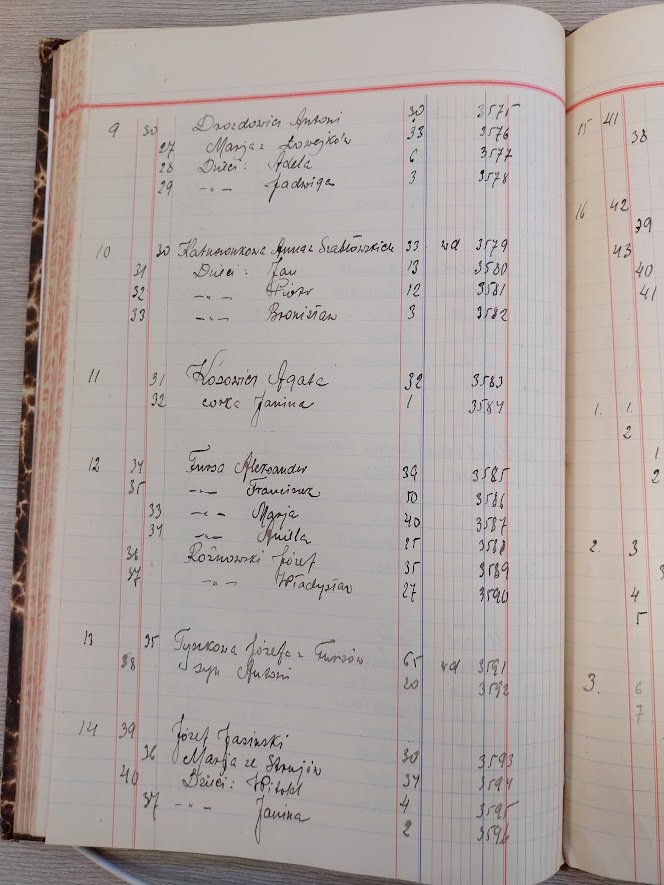 9 30 Drozdowicz Antoni 30 3575
27 Marja z Łowejków 33 3576
28 Dzieci: Adela 6 3577
29 -„- Jadwiga 3 3578
10 30 Anna z 33 wd 3579
31 Dzieci: Jan 13 3580
32 -„- Piotr 12 3581
33 -„- Bronisław 3 3582
11 31 Kosowicz Agata 32 3583
32 corka Janina 1 3584
12 34 Fursa Aleksander 39 3585
35 -„- Franciszek 50 3586
33 -„- Marja 40 3587
34 -„- Aniela 25 3588
36 Rożnowski Józef 35 3589
37 -„- Władysław 27 3590
13 35 Tyszkowa Józefa z Fursów 65 wd 3591
38 syn Antoni 20 3592
14 39 Józef Jasinski 30 3593
36 Marja ze 34 3594
40 Dzieci: Witold 4 3595
37 -„- Janina 2 3596
15 41
38
16 42
39
43
40
41
1. 1.
2
1
2
2. 3
3
4
5
3. 6
7